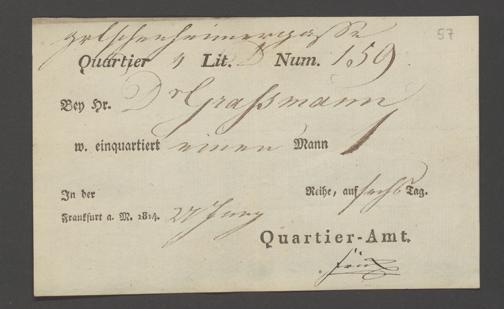 57
Quartier Lit. D Num. 159
Bey Hr. Dr Grassmann
w. einquartiert einen Mann 1
In der Reihe, auf sechs Tag.
Frankfurt a. M. 1814. 27 Juny
Quartier-Amt.